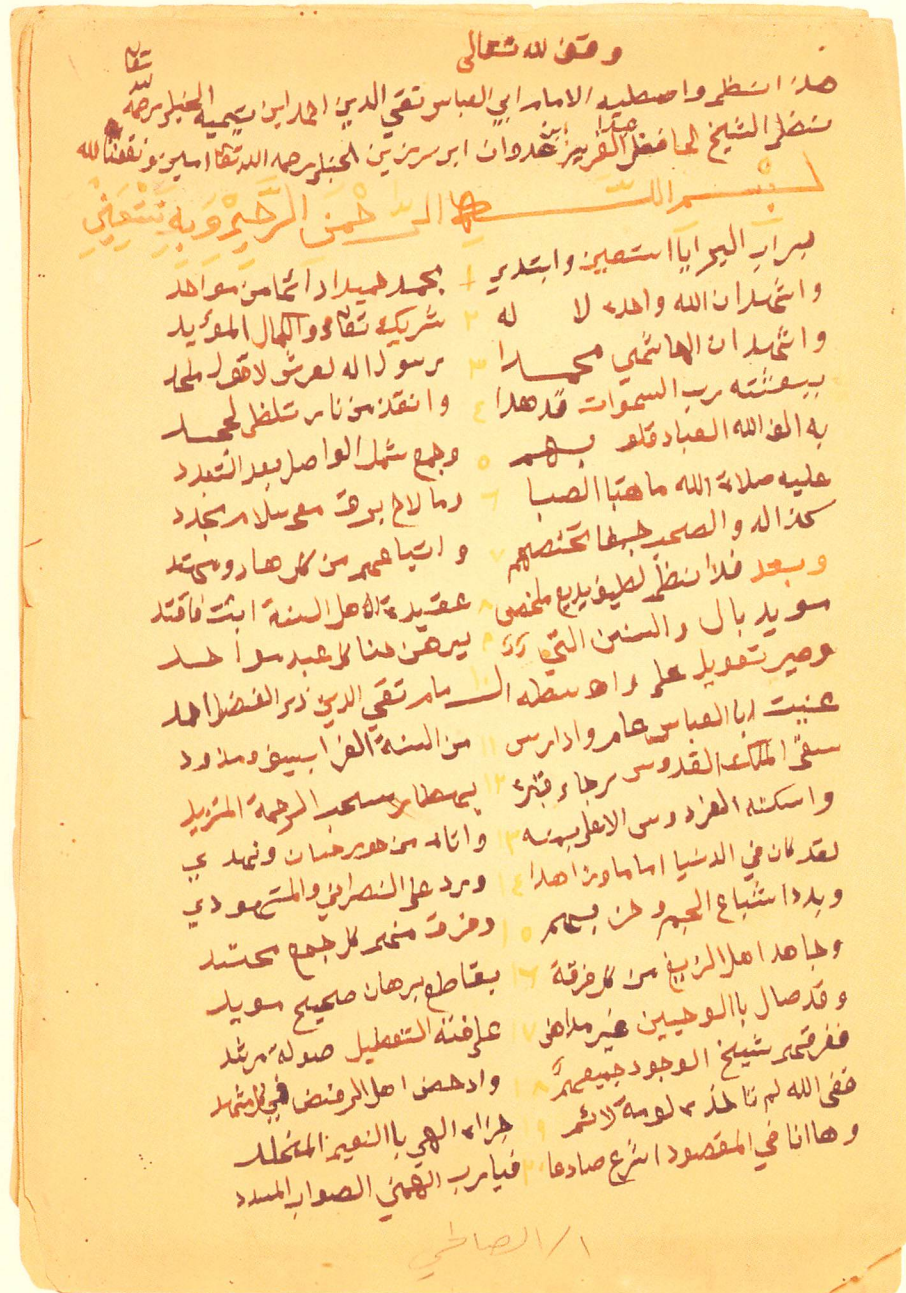 وقف لله تعالى
هذا نظم واصطيه الامام ابي العباس تقي الدين احمد ابن تيميه الحنبلي رحمه الله تعا
نظم الشيخ عدوان ابو سرزين الحنبلي رحمه الله تعا امين ونفعنا الله
بسم الله الرحمن الرحيم وبه نستعين
برب البرايا استعين وابتدي ١ بحمد حميدا دائما من موحد
واشهد ان الله واحد لا له ٢ شريك تعالى والكمال المؤيد
واشهد ان الهاشمي محمدا ٣ رسول اله لعرش لا قول ملحد
ببعثته رب السموات قد هدا ٤ وانقذ من نار تلظى لجحد
به الف الله العباد قلو بهم ٥ وجمع شمل الواصل بعد التبدد
عليه صلاة الله ما هبا الصبا ٦ وما لاح برق مع سلام مجدد
كذا اله والصحب جمعا تخصهم ٧ واتباعهم من كل هاد ومهتد
وبعد فذا نظم لطيف بديع ملخص ٨ عقيدة اهل السنة اثبت فاقتد
مويد بال والسنن التي ٩ يبرهن هنا كل عبد موا حد
وصير تعويل على واسطه ١٠ الامام تقي الدين ذو الفضل احمد
عنيت ابا العباس عامر وادارس ١١ من السنة الغرا بسيف ومذود
سقى الملك القدوس ارجاء قبره ١٢ بهطال سحب الرحمة المتزيد
واسكنه الفردوس الاعلى بمنه ١٣ واتاه من حور حسان ونهدي
لقد كان في الدنيا اماما وزاهدا ١٤ ورد على النصراني والمتهودي
وبدد اشياع الجهم وحزبهم ١٥ ومزق منهم كل جمع محتشد
وجاهد اهل الزيغ من كل فرقة ١٦ بقاطع برهان صحيح مويد
وقد صال با الوحيين غير مداهن ١٧ على فئة التعطيل صولة مرشد
ففرقهم شيخ الوجود جميعهم ١٨ وادحض اهل الرفض في كل مشهد
ففي الله لم تاخذه لومة لائم ١٩ جزاه الهي با النعيم المخلد
وها انا في المقصود اشرع صادعا ٢٠ فيا رب الهمني الصواب المسدد
١/ الصالحي